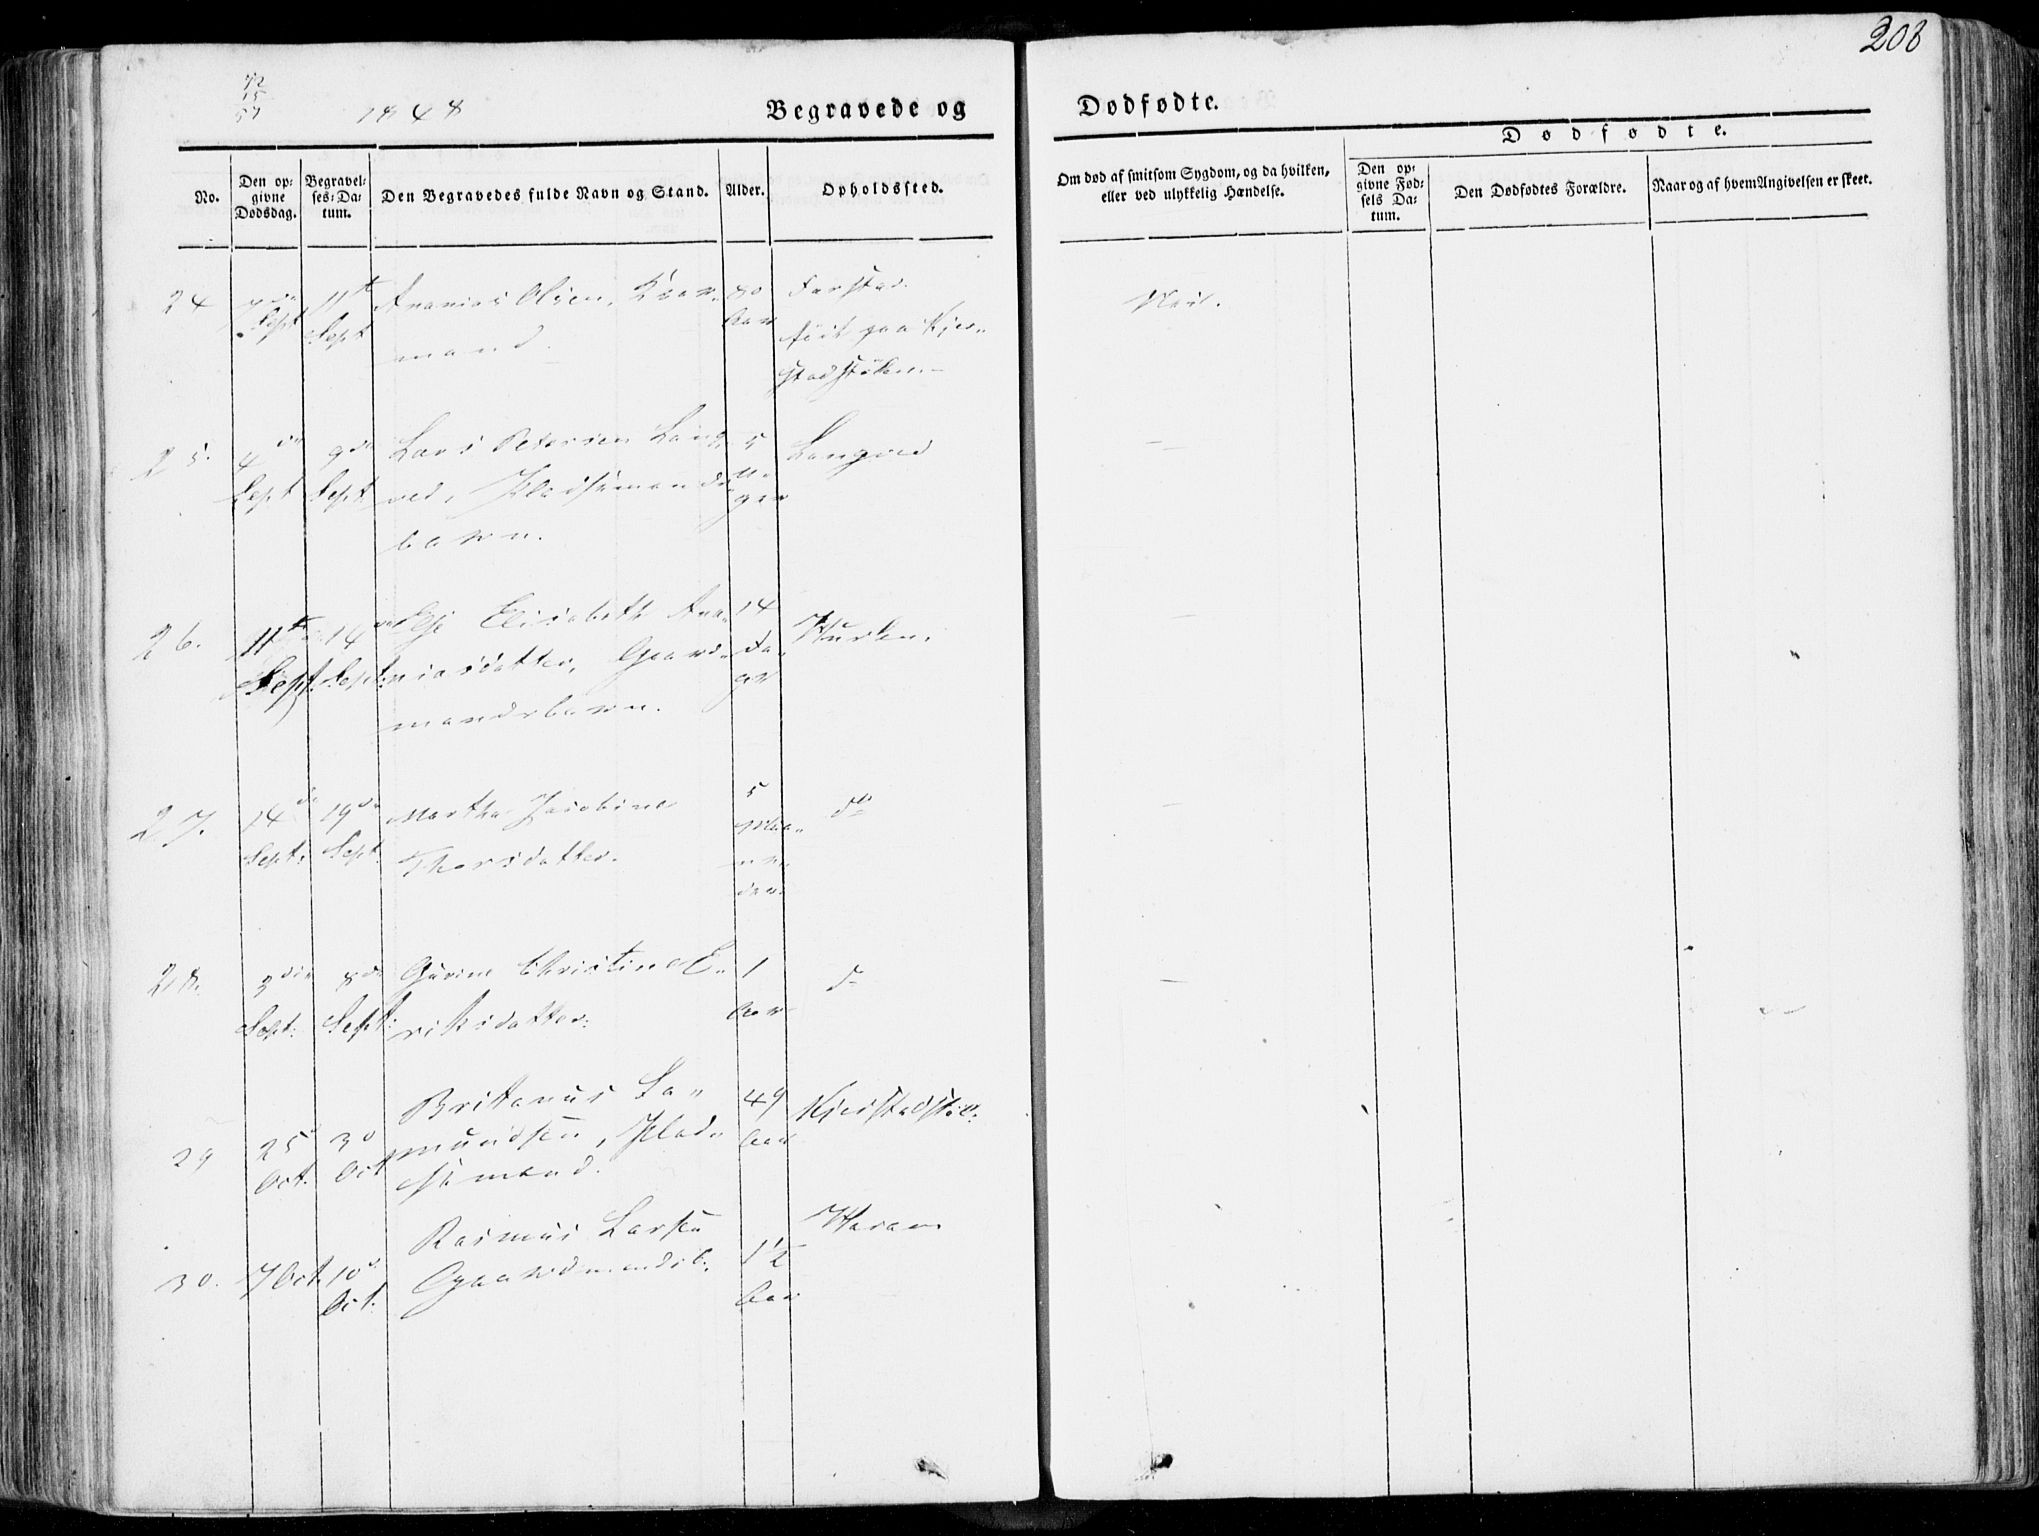 208
12
15
57
1848
Begravede og
Dødfødte.
Dødfødte.
No.
Den op-
givne
Dødsdag.
Begravel-
ses-Da-
tum.
Den Begravedes fulde Navn og Stand.
Alder.
Opholdssted.
Om død af smitsom Sygdom, og da hvilken,
eller ved ulykkelig Hændelse.
Den op-
givne Fød-
sels Da-
tum.
Den Dødfødtes Forældre.
Naar og af hvem Angivelsen er skeet.
24
7de
Sept
11te
Sept
Ananias Olsen,
mand.
80
Aar
Farstad
født paa Kjer-
stadstølen.
Nei.
25.
4de
Sept
9de
Sept
Lars Petersen Lang-
ved, Pladsemands
barn.
5
U-
ger
Langved
—
26.
11te
Sept
14de
Sept.
Elisabeth Ana-
niasdatter, Gaard-
mandsbarn.
14
Da-
ge
Hurlen.
27.
14de
Sept:
19de
Sept.
Martha Jacobine
Thorsdatter.
5
Maa-
ne-
der
do
—
28.
3die
Sept:
8de
Sept:
Gurine Christine E-
riksdatter.
1
Aar
do
—
29
25de
Oct.
30
Oct
Brittanus La-
mundsen, Plad-
semand.
49
Aar
Kjerstadstøl.
30.
7 Oct.
10de
Oct.
Rasmus Larsen
Gaardmandsb.
1½
Aar
Haram